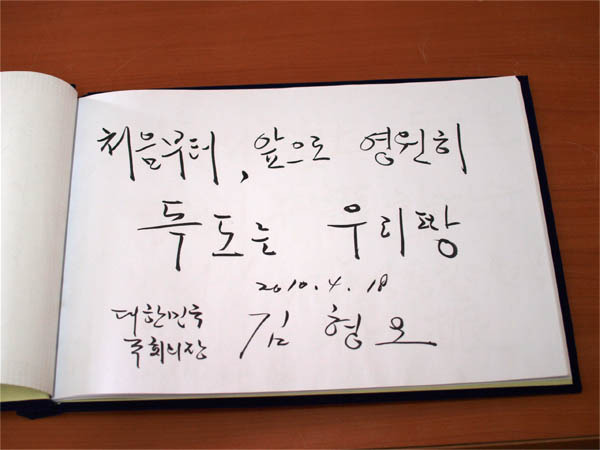 처음부터, 앞으로 영원히
독도는 우리땅
2010. 4. 18
대한민국
국회의장 김형오